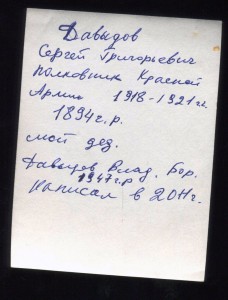 Давыдов
Сергей Григорьевич
полковник Красной
Армии 1918-1921гг.
1894г.р.
мой дед.
Давыдов Влад. Бор.
1947г.р
Написал в 2011г.